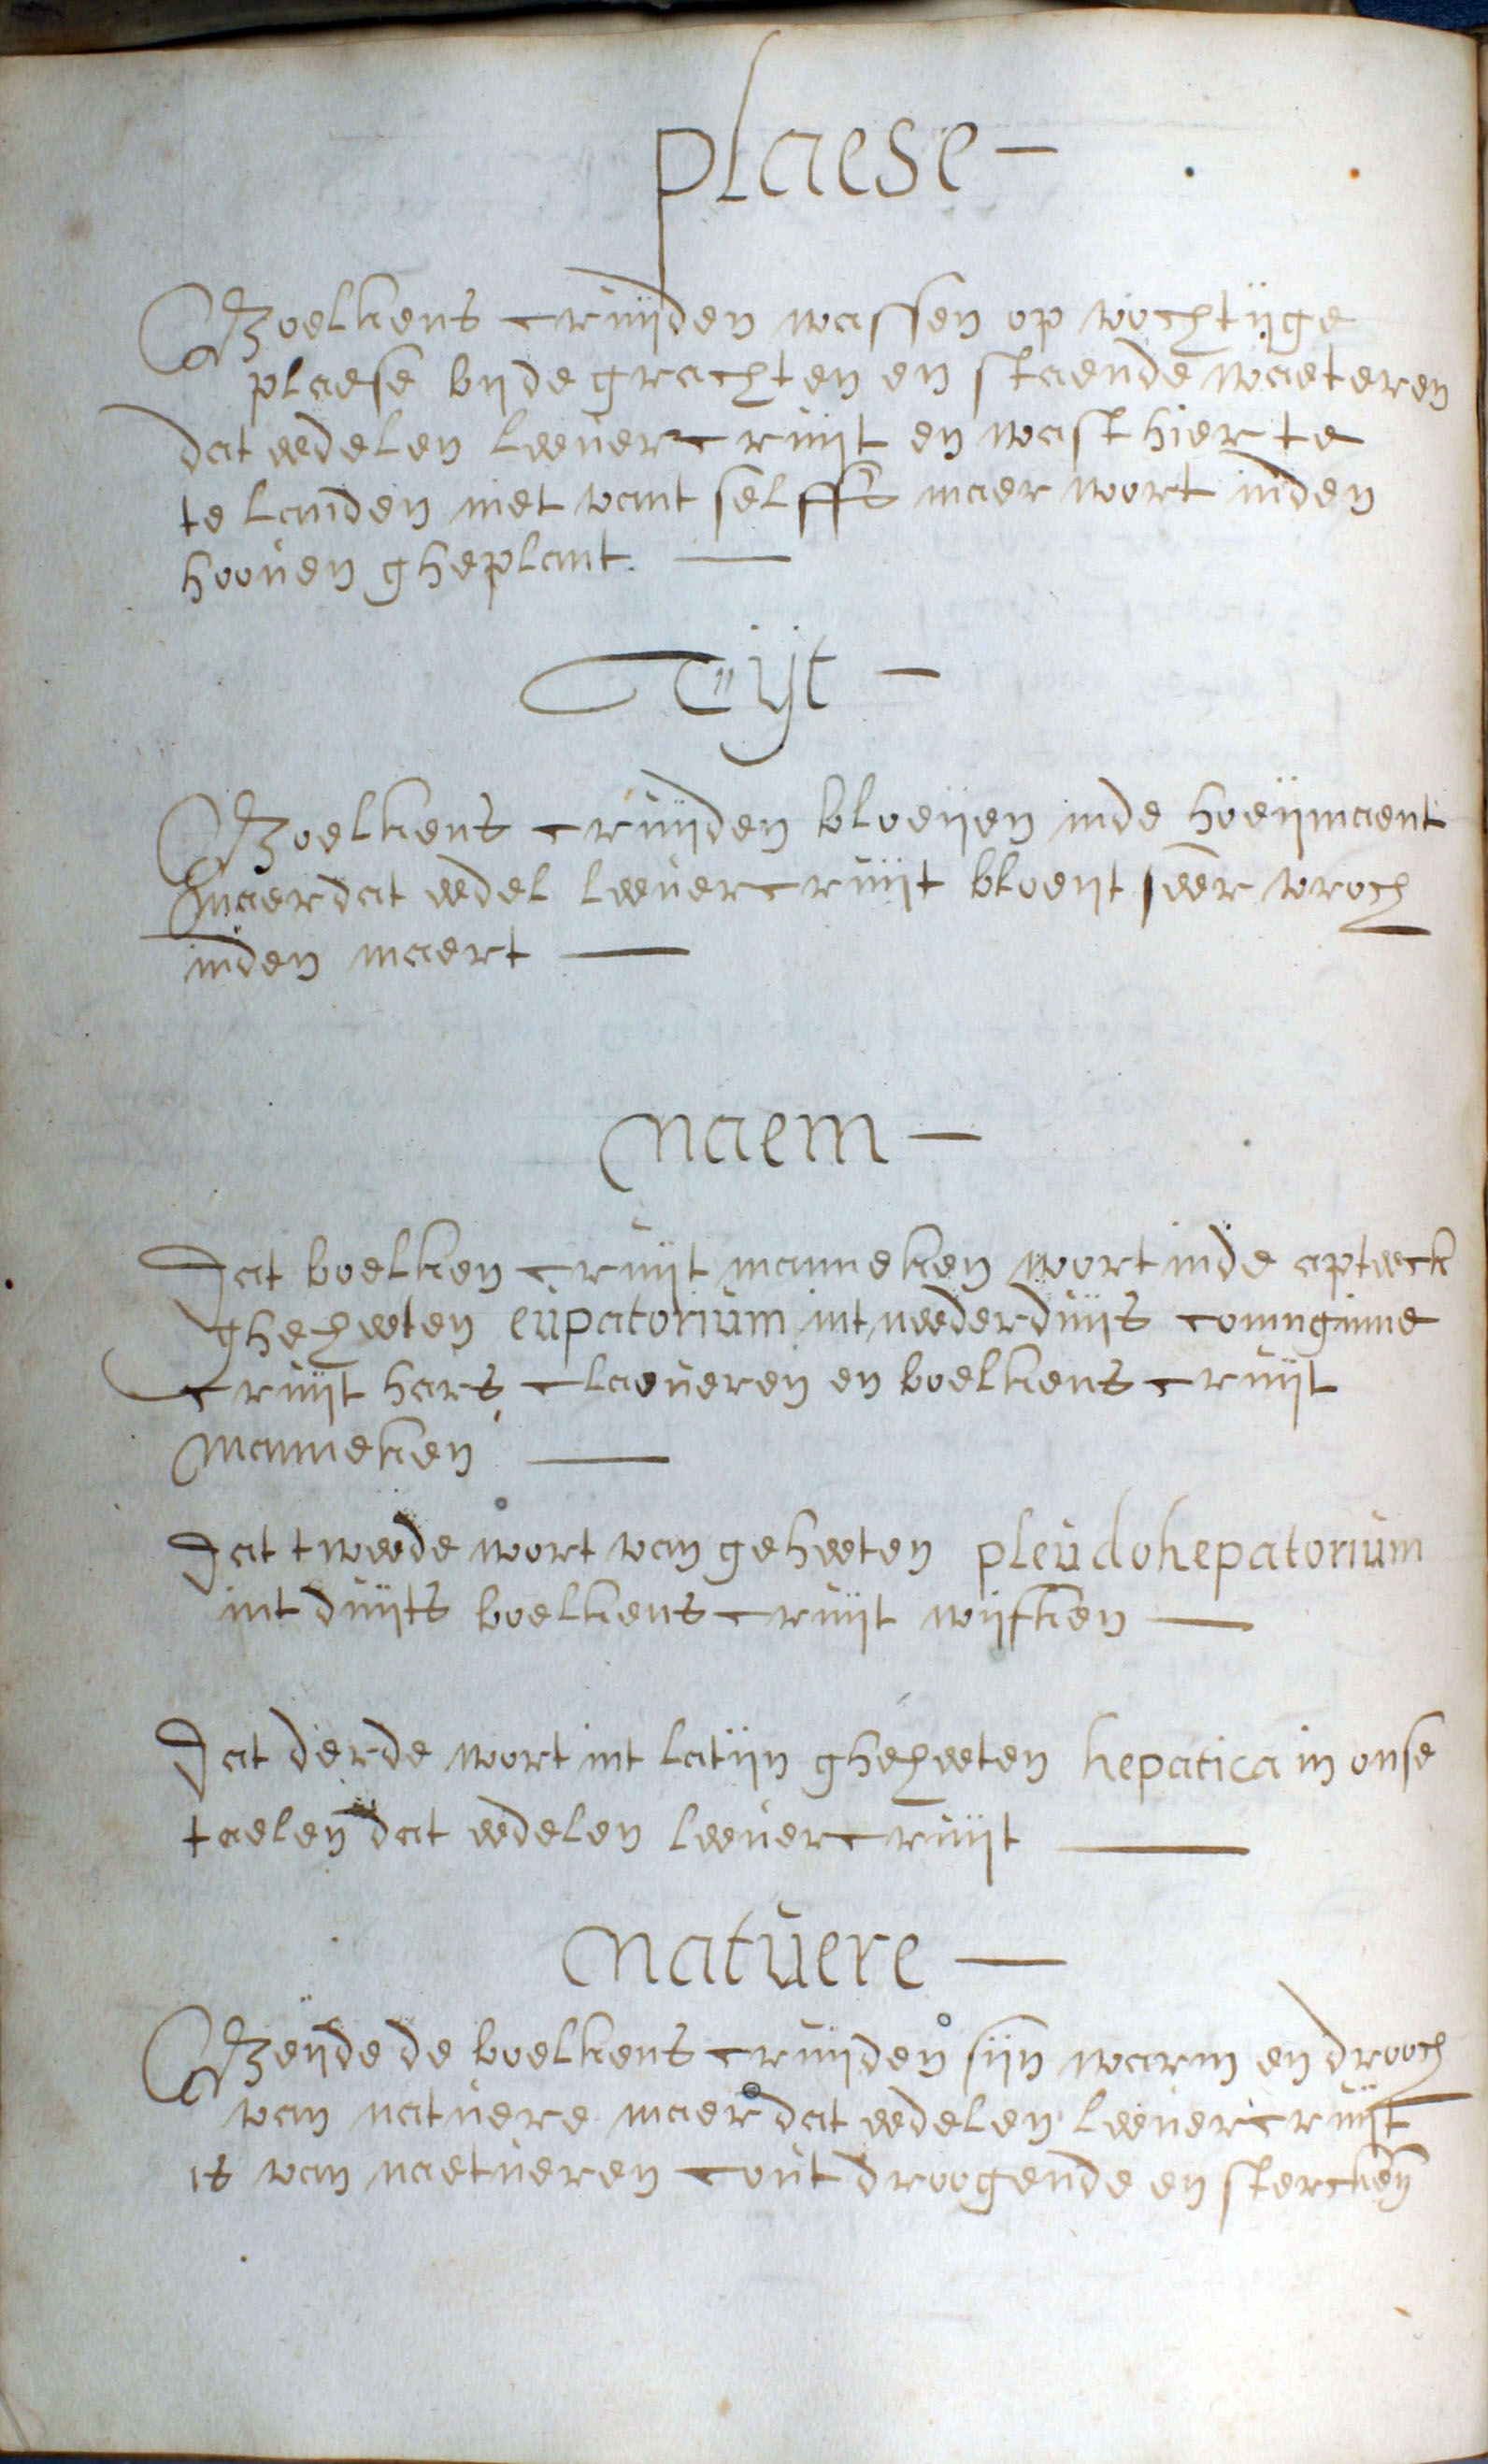 plaese —
Boelkens cruijden wassen op vochtijge
plaese bijde grachten en staende waeteren
dat eedelen leevercruijt en wast hier te
te landen niet vant selffs maer wort inden
hooven gheplant. —
Tijt —
Boelkens cruijden bloeijen inde hoeijmaent
maer dat eedel leevercruijt bloeijt seer vroch
inden maert —
Naem —
Dat boelken cruijt manneken wort inde apteeck
gheheeten eupatorium int neederduijts coninginne
cruijt harts claeveren en boelkens cruijt
manneken —
Dat tweede wort van geheeten pleudohepatorium
int duijts boelkens cruijt wijfken —
Dat derde wort int latijn gheheeten hepatica in onse
taelen dat eedelen leevercruijt —
Natuere —
Beijde de boelkens cruijden sijn warm en drooch
van natuere maer dat eedelen leevercruijt
is van naetueren cout droogende en stercken